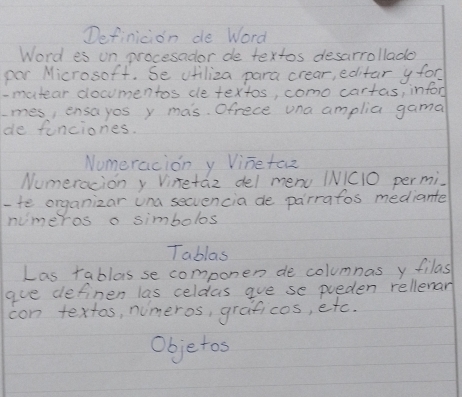 Definición de Word
Word es un procesador de textos desarrollado
por Microsoft. Se utiliza para crear, editar y for
-matear documentos de textos, como cartas, infor
-mes, ensayos y más. Ofrece una amplia gama
de funciones.
Numeración y Viñetaz
Numeración y Vinetáz del menú INICIO permi-
-te organizar una secuencia de párrafos mediante
números o simbolos
Tablas
Las tablas se componen de columnas y filas
que definen las celdas que se pueden rellenar
con textos, números, gráficos, etc.
Objetos